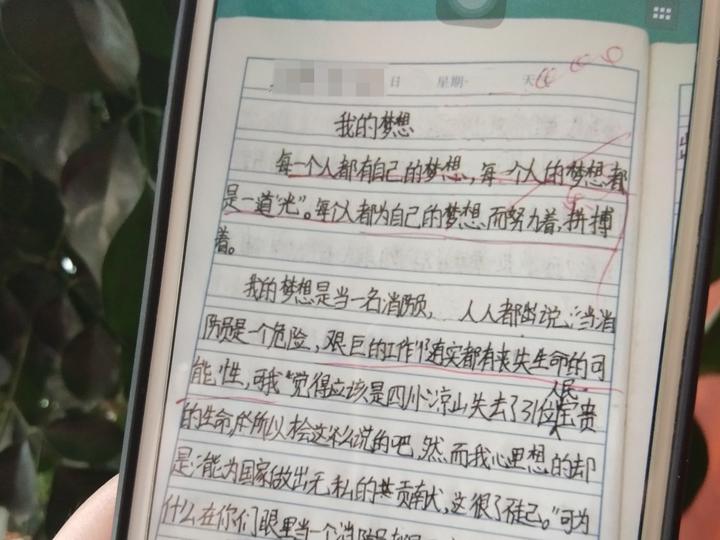 日 星期 天
我的梦想
每一个人都有自己的梦想，每一个人的梦想都
是一道“光”。每个人都为自己的梦想而努力着，拼搏
着。
我的梦想是当一名消防员， 人人都说，当消
防员是一个危险，艰巨的工作 都有丧失生命的可
能性，可我 觉得应该是四川凉山失去了31位人民宝贵
的生命，所以才会这么说的吧，然而我心里想的却
是：能为国家做出无私的共贡献，这很了不起。”可为
什么在你们眼里当一个消防员